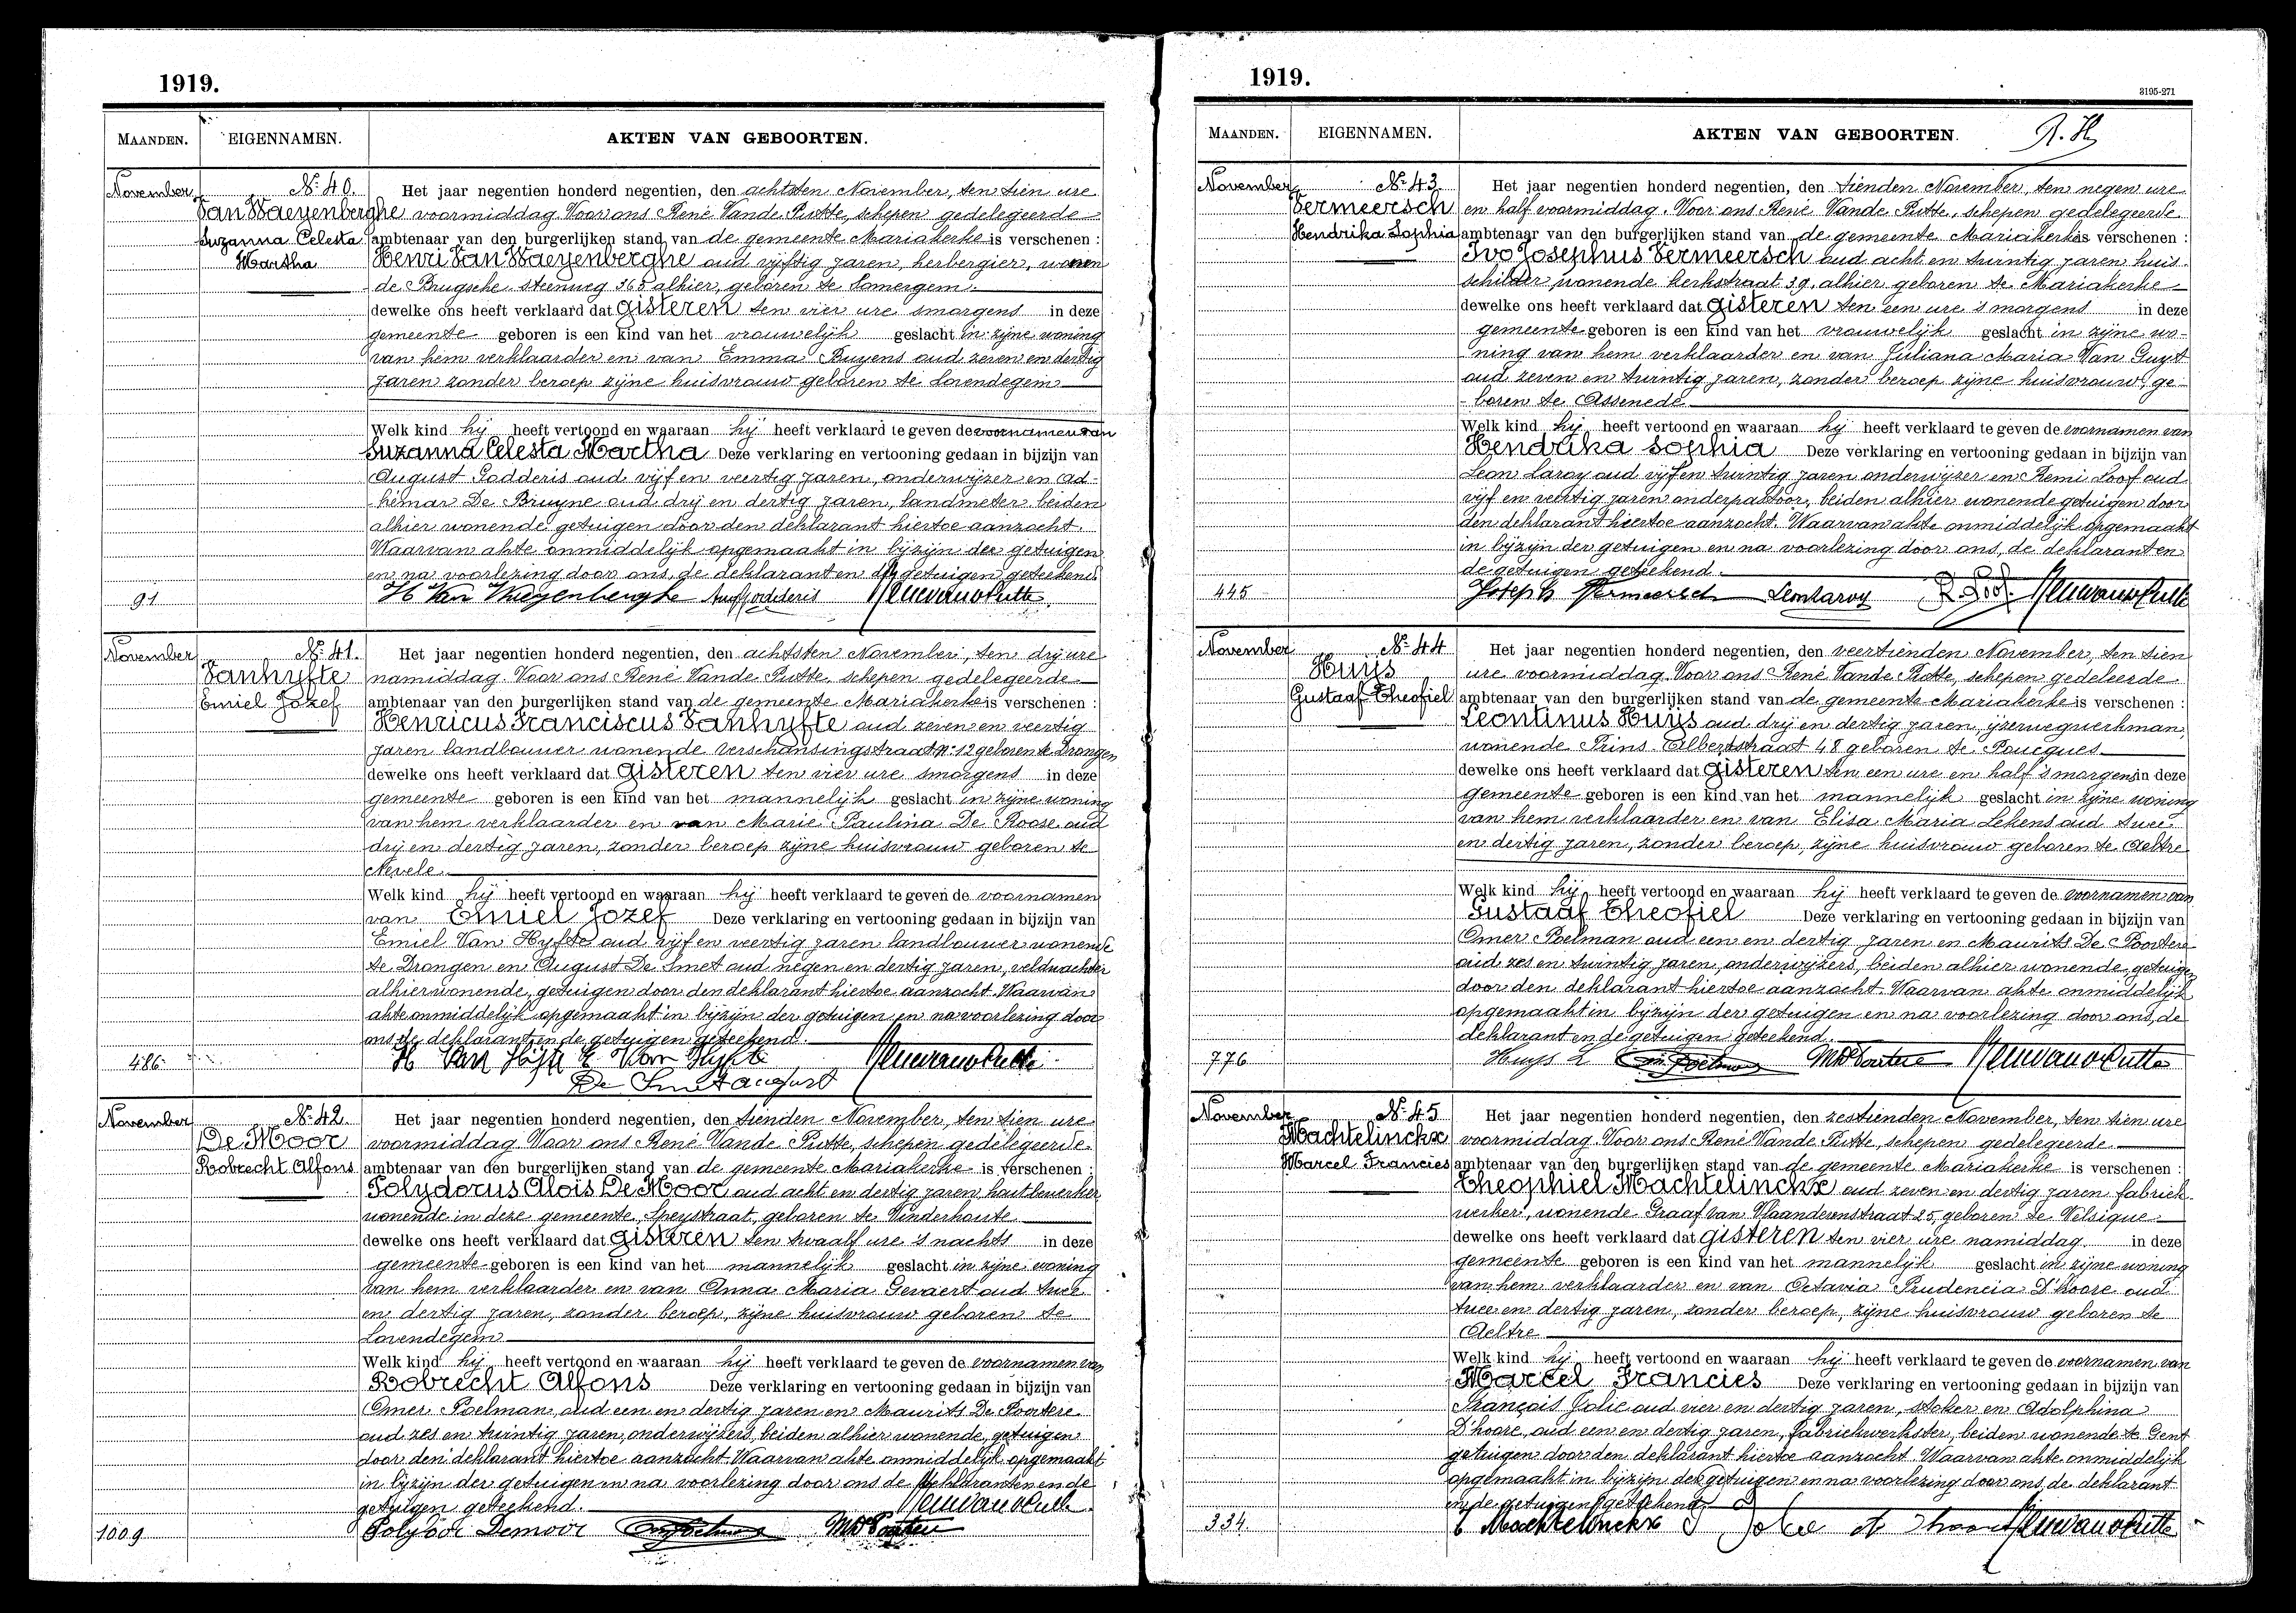 1919.
MAANDEN. EIGENNAMEN. AKTEN VAN GEBOORTEN.
November Nr 40. Het jaar negentien honderd negentien, den achtsten November, ten tien ure
Van Waeyenberghe voormiddag Voor ons René Vande Putte, schepen gedelegeerde
Suzanna Celesta ambtenaar van den burgerlijken stand van de gemeente Mariakerke is verschenen :
Martha Henri Van Waeyenberghe oud vijftig jaren, herbergier, wonen
de Brugsche steenweg 365 alhier, geboren te Somergem.
dewelke ons heeft verklaard dat gisteren ten vier ure smorgens in deze
gemeente geboren is een kind van het vrouwelijk geslacht in zijne woning
van hem verklaarder en van Emma Buyens oud zeven en dertig
jaren zonder beroep zijne huisvrouw geboren te Lovendegem
Welk kind hij heeft vertoond en waaraan hij heeft verklaard te geven de voornamen van
Suzanna Celesta Martha Deze verklaring en vertooning gedaan in bijzijn van
August Godderis oud vijf en veertig jaren, onderwijzer en Ad-
hemar De Bruyne oud drij en dertig jaren, landmeter beiden
alhier wonende getuigen door den deklarant hiertoe aanzocht.
Waarvan akte onmiddelijk opgemaakt in bijzijn der getuigen
en na voorlezing door ons, de deklarant en de getuigen geteekend
91 H Van Waeyenberghe Aug Godderis Renévandeputte
November Nr 41. Het jaar negentien honderd negentien, den achtsten November, ten drij ure
Vanhyfte namiddag Voor ons René Vande Putte, schepen gedelegeerde
Emiel Jozef ambtenaar van den burgerlijken stand van de gemeente Mariakerke is verschenen :
Henricus Franciscus Vanhyfte oud zeven en veertig
jaren landbouwer wonende verschansingstraat nr 12 geboren te Drongen
dewelke ons heeft verklaard dat gisteren ten vier ure smorgens in deze
gemeente geboren is een kind van het mannelijk geslacht in zijne woning
van hem verklaarder en van Marie Paulina De Roose oud
drij en dertig jaren, zonder beroep zijne huisvrouw geboren te
Nevele
Welk kind hij heeft vertoond en waaraan hij heeft verklaard te geven de voornamen
van Emiel Jozef Deze verklaring en vertooning gedaan in bijzijn van
Emiel Van Hyfte oud vijf en veertig jaren landbouwer wonende
te Drongen en August De Smet oud negen en dertig jaren, veldwachter
alhier wonende, getuigen door den deklarant hiertoe aanzocht. Waarvan
akte onmiddelijk opgemaakt in bijzijn der getuigen en na voorlezing door
ons de deklarant en de getuigen geteekend.
486 H Van Hijfte E Van Hyfte Renévandeputte
De Smet august
November Nr 42. Het jaar negentien honderd negentien, den tienden November, ten tien ure
De Moor voormiddag Voor ons René Vande Putte, schepen gedelegeerde
Robrecht Alfons ambtenaar van den burgerlijken stand van de gemeente Mariakerke is verschenen :
Polydorus Alois De Moor oud acht en dertig jaren houtbewerker
wonende in deze gemeente, Speystraat, geboren te Vinderhoute
dewelke ons heeft verklaard dat gisteren ten twaalf ure 's nachts in deze
gemeente geboren is een kind van het mannelijk geslacht in zijne woning
van hem verklaarder en van Anna Maria Gevaert oud twee
en dertig jaren, zonder beroep, zijne huisvrouw geboren te
Lovendegem
Welk kind hij heeft vertoond en waaraan hij heeft verklaard te geven de voornamen van
Robrecht Alfons Deze verklaring en vertooning gedaan in bijzijn van
Omer Poelman, oud een en dertig jaren en Maurits De Poortere
oud zes en twintig jaren, onderwijzers, beiden alhier wonende, getuigen
door den deklarant hiertoe aanzocht. Waarvan akte onmiddelijk opgemaakt
in bijzijn der getuigen en na voorlezing door ons de deklarant en de
getuigen geteekend. Renévandeputte
1009 Polydor Demoor MDePoortere
1919.
3195-271
MAANDEN. EIGENNAMEN. AKTEN VAN GEBOORTEN.
November Nr 43 Het jaar negentien honderd negentien, den tienden November, ten negen ure
Vermeersch en half voormiddag. Voor ons René Vande Putte, schepen gedelegeerde
Hendrika Sophia ambtenaar van den burgerlijken stand van de gemeente Mariakerke is verschenen :
Ivo Josephus Vermeersch oud acht en twintig jaren huis-
schilder wonende kerkstraat 39, alhier geboren te Mariakerke
dewelke ons heeft verklaard dat gisteren ten een ure 's morgens in deze
gemeente geboren is een kind van het vrouwelijk geslacht in zijne wo-
ning van hem verklaarder en van Juliana Maria Van Guyt
oud zeven en twintig jaren, zonder beroep zijne huisvrouw, ge-
boren te Assenede
Welk kind hij heeft vertoond en waaraan hij heeft verklaard te geven de voornamen van
Hendrika Sophia Deze verklaring en vertooning gedaan in bijzijn van
Leon Laroy oud vijf en twintig jaren onderwijzer en Remi Loof oud
vijf en veertig jaren onderpastoor, beiden alhier wonende getuigen door
den deklarant hiertoe aanzocht. Waarvan akte onmiddelijk opgemaakt
in bijzijn der getuigen en na voorlezing door ons, de deklarant en
de getuigen geteekend.
445 Joseph Vermeersch Leon Laroy R Loof Renévandeputte
November Nr 44 Het jaar negentien honderd negentien, den veertienden November, ten tien
Huijs ure voormiddag. Voor ons René Vande Putte, schepen gedeleerde
Gustaaf Theofiel ambtenaar van den burgerlijken stand van de gemeente Mariakerke is verschenen :
Leontinus Huijs oud drij en dertig jaren, ijzerwegwerkman,
wonende Prins Albertstraat 48 geboren te Poucques
dewelke ons heeft verklaard dat gisteren ten een ure en half 's morgens in deze
gemeente geboren is een kind van het mannelijk geslacht in zijne woning
van hem verklaarder en van Elisa Maria Lekens oud twee
en dertig jaren, zonder beroep, zijne huisvrouw geboren te Aeltre
Welk kind hij heeft vertoond en waaraan hij heeft verklaard te geven de voornamen van
Gustaaf Theofiel Deze verklaring en vertooning gedaan in bijzijn van
Omer Poelman oud een en dertig jaren en Maurits De Poortere
oud zes en twintig jaren, onderwijzers, beiden alhier wonende, getuigen
door den deklarant hiertoe aanzocht. Waarvan akte onmiddelijk
opgemaakt in bijzijn der getuigen en na voorlezing door ons, de
deklarant en de getuigen geteekend.
776 Huys L Om Poelman MDePoortere Renévandeputte
November Nr 45 Het jaar negentien honderd negentien, den zestienden November, ten tien ure
Machtelinckx voormiddag. Voor ons René Vande Putte, schepen gedelegeerde
Marcel Francies ambtenaar van den burgerlijken stand van de gemeente Mariakerke is verschenen :
Theophiel Machtelinckx oud zeven en dertig jaren fabriek-
werker, wonende Graaf van Vlaanderenstraat 25, geboren te Velsique
dewelke ons heeft verklaard dat gisteren ten vier ure namiddag in deze
gemeente geboren is een kind van het mannelijk geslacht in zijne woning
van hem verklaarder en van Octavia Prudencia D'hoore oud
twee en dertig jaren, zonder beroep, zijne huisvrouw geboren te
Aeltre
Welk kind hij heeft vertoond en waaraan hij heeft verklaard te geven de voornamen van
Marcel Francies Deze verklaring en vertooning gedaan in bijzijn van
François Jolie oud vier en dertig jaren, stoker en Adolphina
D'hoore, oud een en dertig jaren, fabriekwerkster, beiden wonende te Gent
getuigen door den deklarant hiertoe aanzocht. Waarvan akte onmiddelijk
opgemaakt in bijzijn der getuigen en na voorlezing door ons, de deklarant
en de getuigen geteekend
334 T Machtelinckx Jolie Renévandeputte